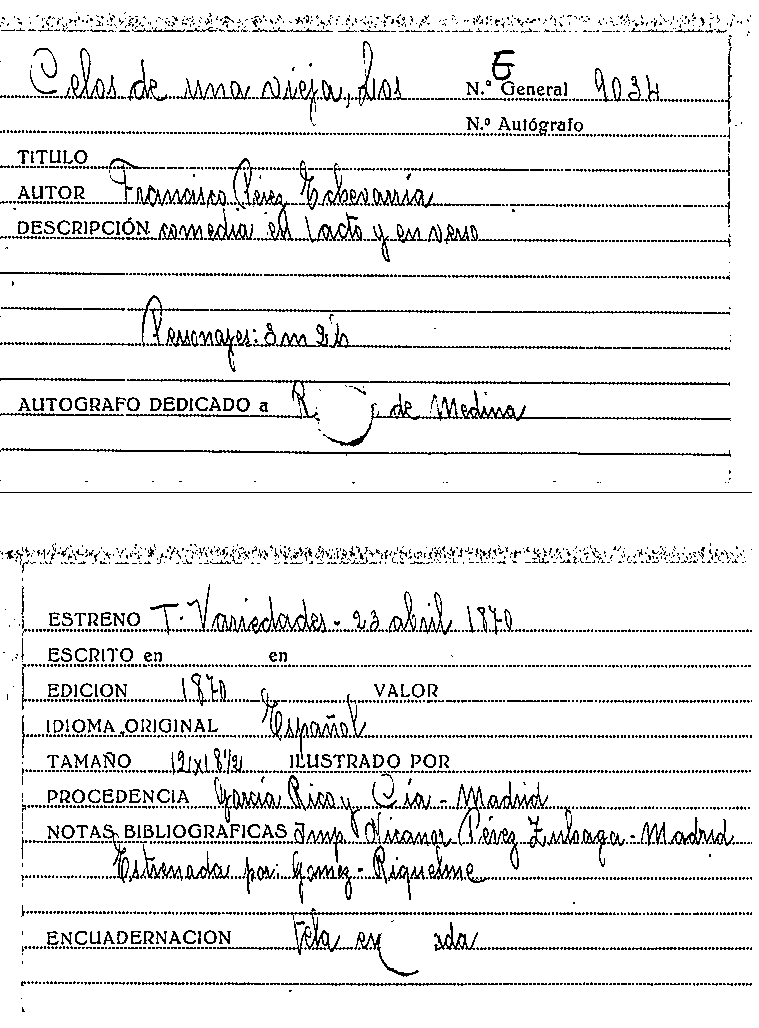 Celos de una vieja, Los
E
N.º General 9034
N.º Autógrafo
TITULO
AUTOR Francisco Pérez Echevarría
DESCRIPCIÓN comedia en 1 acto y en verso
Personajes: 3 m 2 h
AUTOGRAFO DEDICADO a R. de Medina
ESTRENO T. Variedades - 23 abril 1870
ESCRITO en en
EDICION 1870 VALOR
IDIOMA ORIGINAL Español
TAMAÑO 12 x 18 1/2 ILUSTRADO POR
PROCEDENCIA García Rico y Cía - Madrid
NOTAS BIBLIOGRAFICAS Imp. Nicanor Pérez Zuloaga - Madrid
Estrenada por: Gómez - Riquelme
ENCUADERNACION Tela